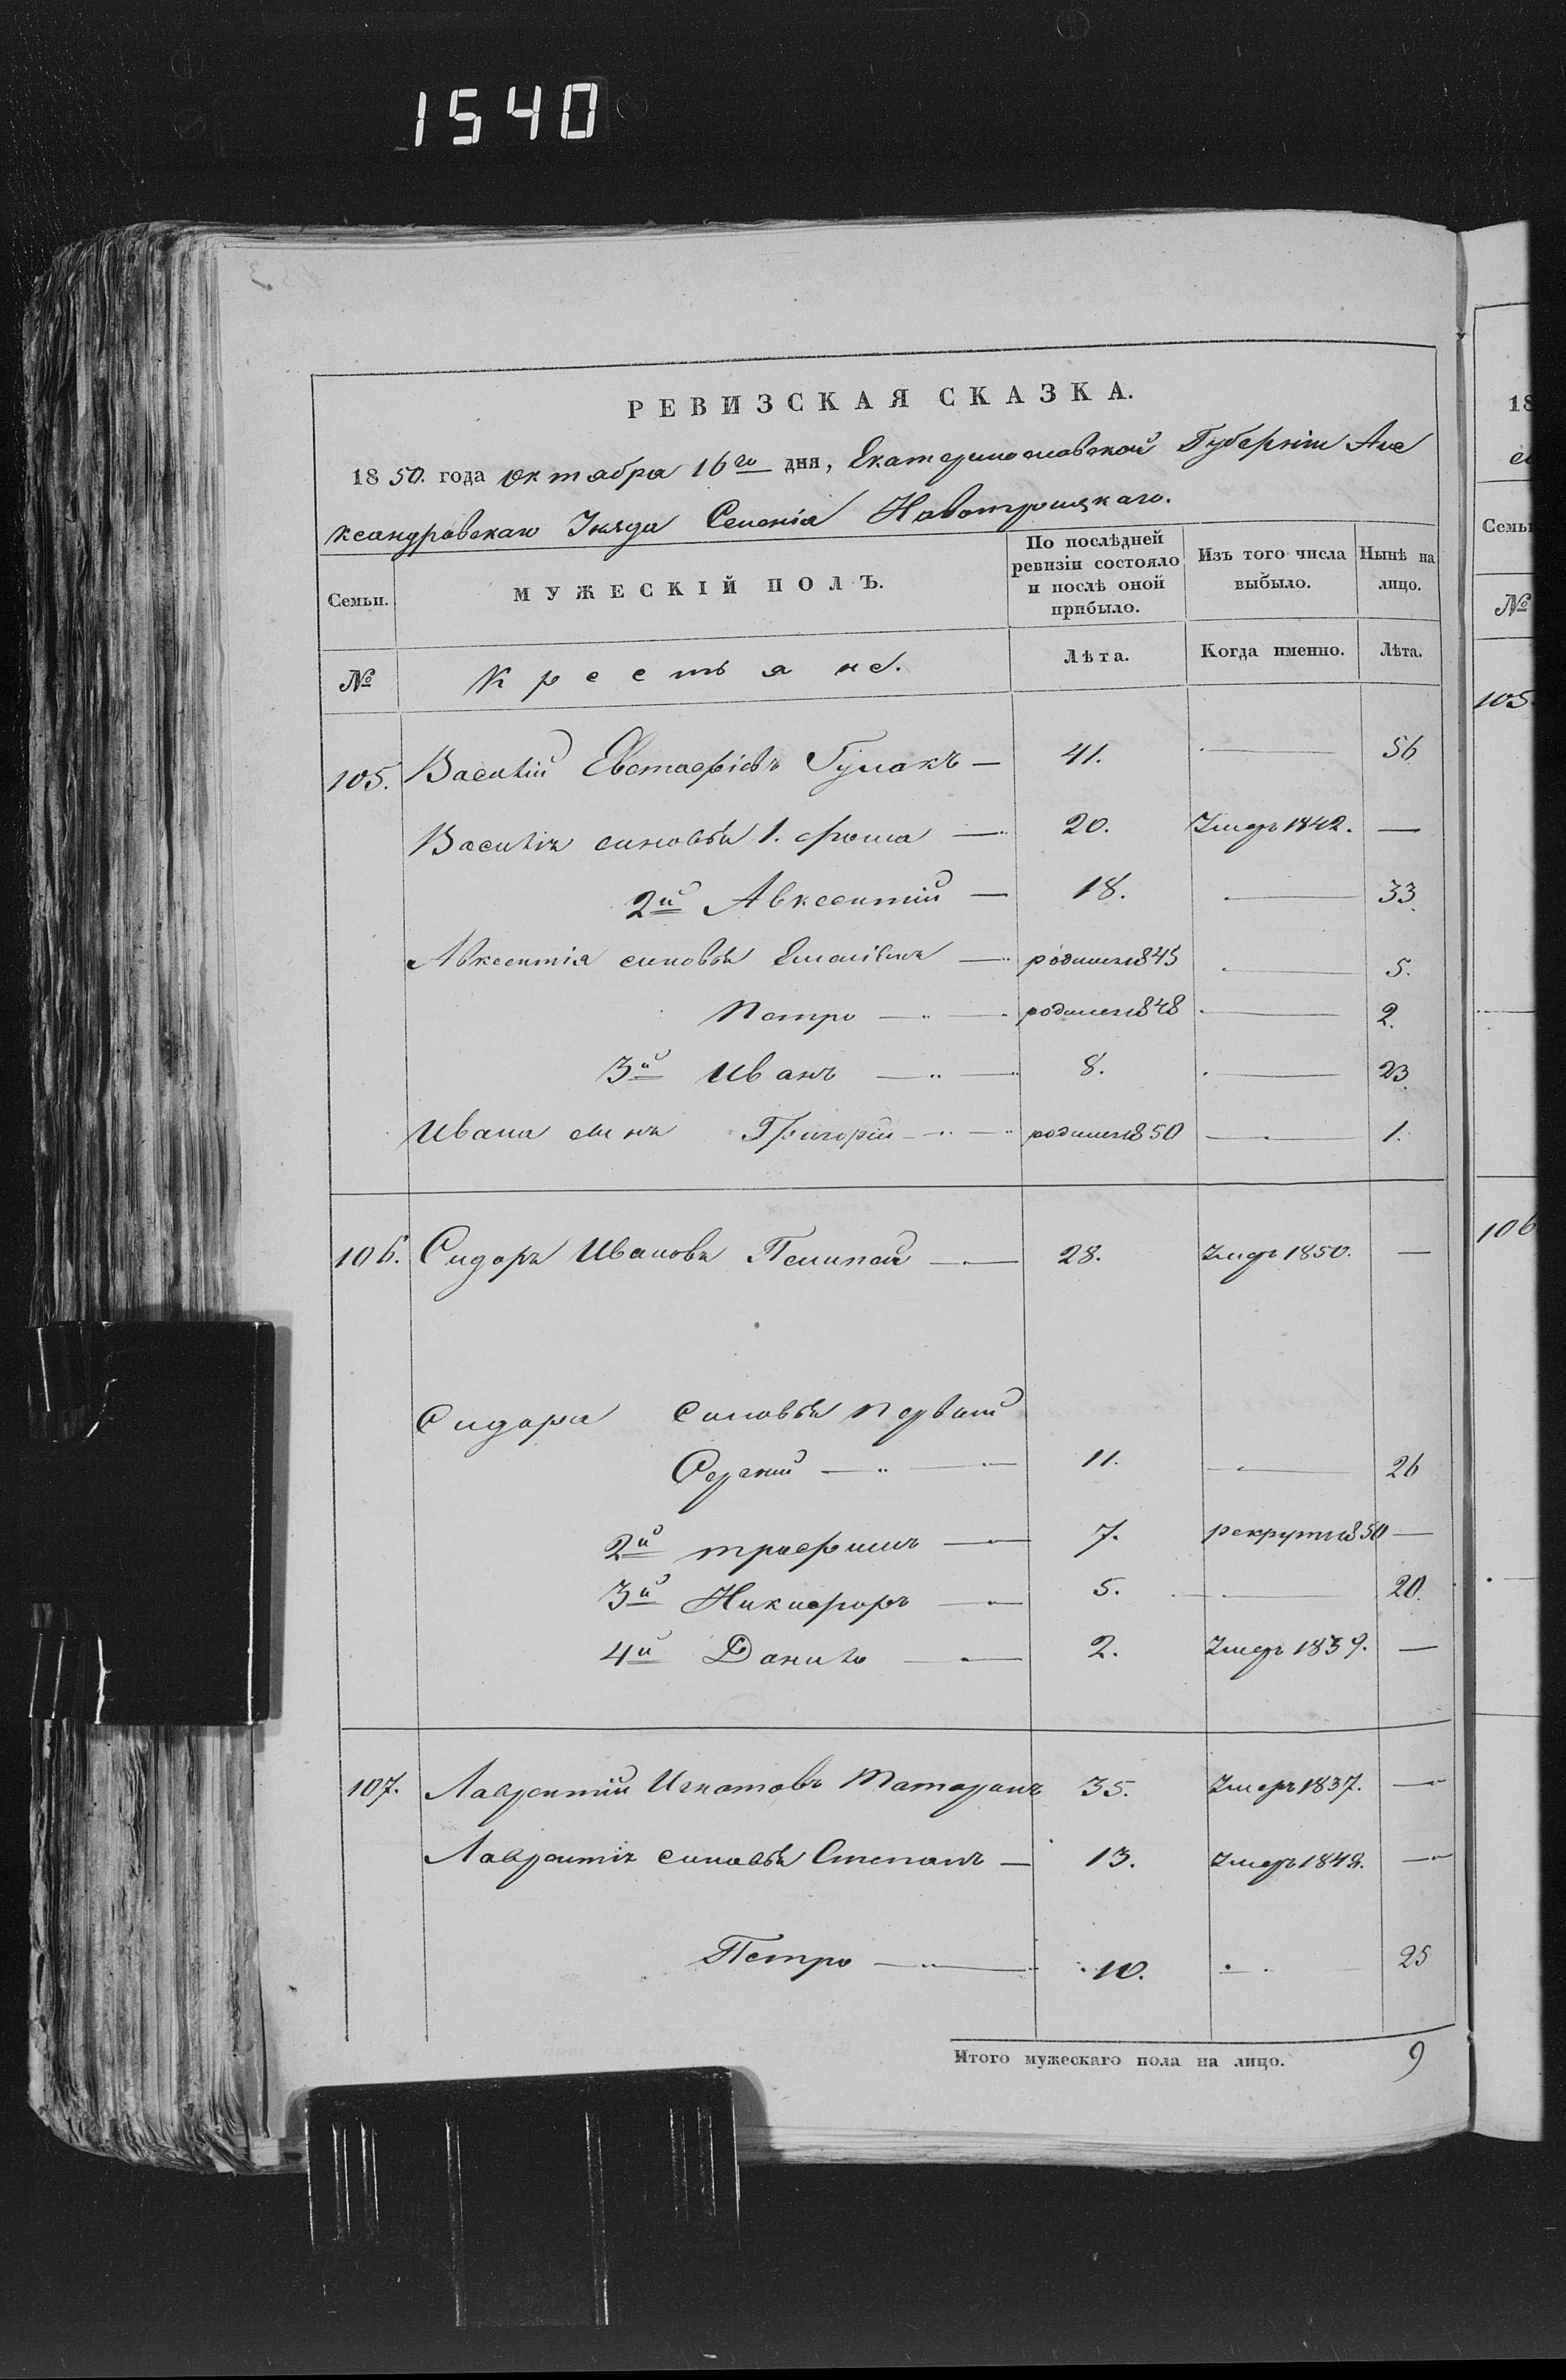 1540
РЕВИЗСКАЯ СКАЗКА.
1850. года октября 16го дня, Екатеринославской Губерніи Але
ксандровскаго Уезда Селенія Новотроицкаго.
Семьи. МУЖЕСКІЙ ПОЛЪ. По послѣдней ревизіи состояло и послѣ оной прибыло. Изъ того числа выбыло. Нынѣ на лицо.
№ Крестьяне. Лѣта. Когда именно. Лѣта.
105. Василій Евстафіевъ Гулакъ — 41. — 56
Василія синовья 1. фома — 20. Умеръ 1842. —
2й Авксентий — 18. — 33.
Авксентія синовья — родился 1845 — 5.
Петро — родился 1848 — 2.
3й Иванъ — 8. — 23.
Ивана синъ Григорій — родился 1850 — 1.
106. Сидоръ Ивановъ — 28. Умеръ 1850. —
Сидора Синовья первый
Сергий — 11. — 26
2й трофимъ — 7. рекрутъ 1850 —
3й Никифоръ — 5. — 20.
4й Данило — 2. Умеръ 1839. —
107. Лаврентий Игнатовъ Татаранъ 35. Умеръ 1837. —
Лаврентія синовья Степанъ — 13. Умеръ 1848. —
Петро — 10. — 25
Итого мужескаго пола на лицо. 9
18
Семьи
№
105.
106